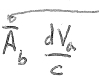 Ā_b dV_a/c